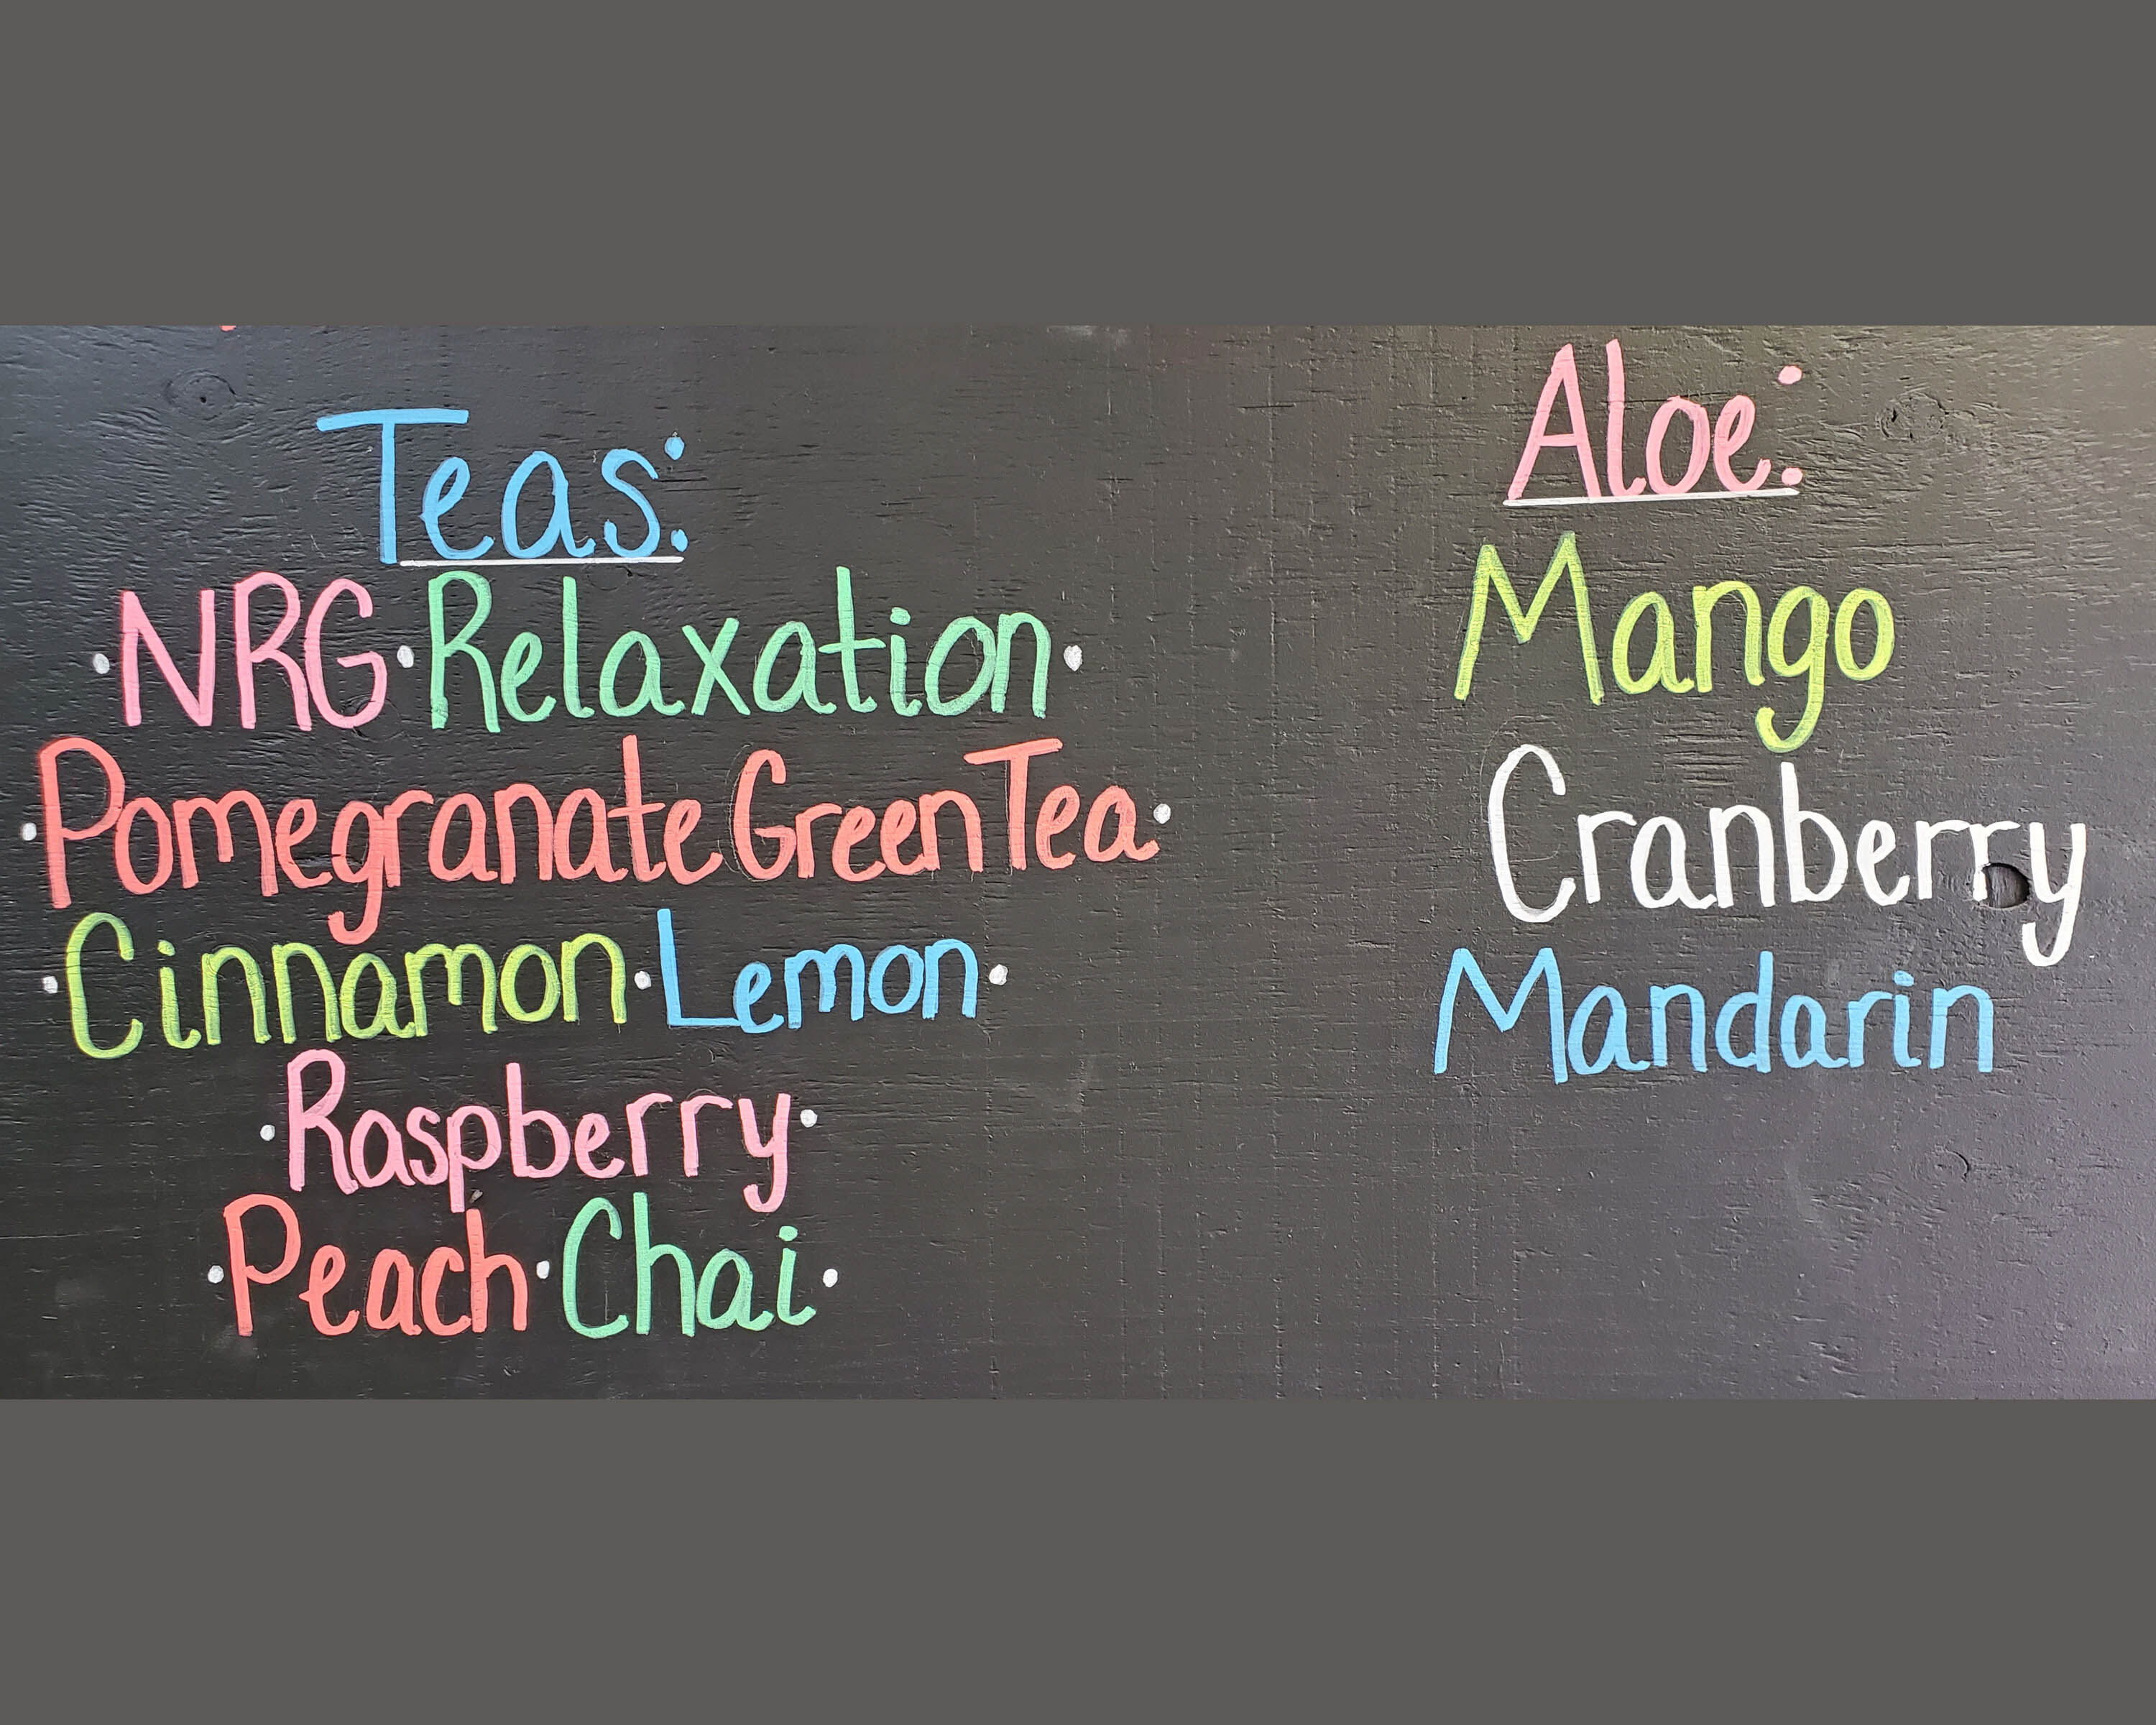 Teas:
·NRG·Relaxation·
·Pomegranate Green Tea·
·Cinnamon·Lemon·
·Raspberry·
·Peach·Chai·
Aloe:
Mango
Cranberry
Mandarin